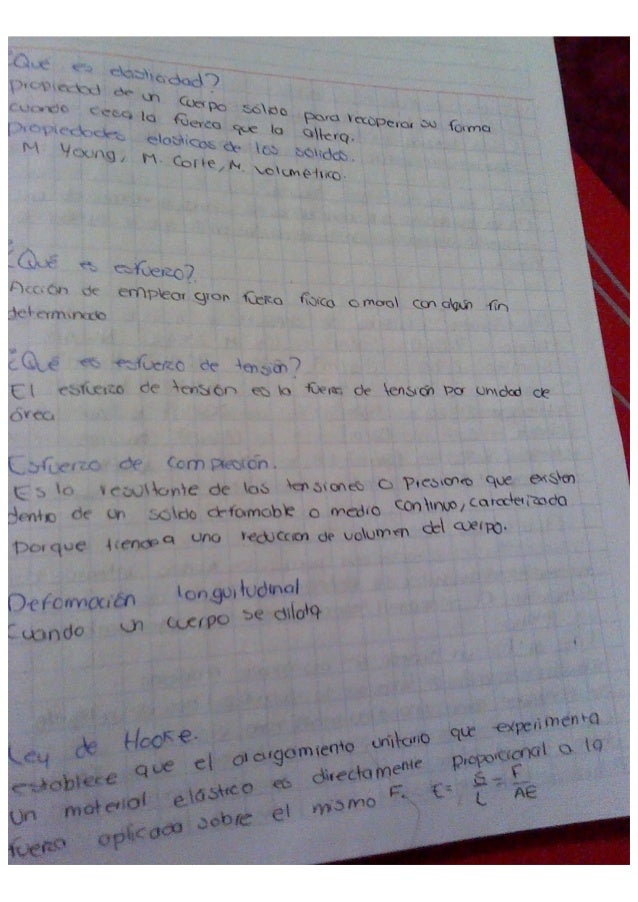 ¿Qué es elasticidad?
propiedad de un cuerpo solido para recuperar su forma
cuando cesa la fuerza que la altera.
Propiedades elasticas de los solidos.
M. Young, M. Corte, M. volumétrico.
¿Qué es esfuerzo?
Acción de emplear gran fuerza fisica o moral con algún fin
determinado
¿Qué es esfuerzo de tensión?
El esfuerzo de tensión es la fuerza de tensión por unidad de
área
Esfuerzo de compresión.
Es la resultante de las tensiones o presiones que existen
dentro de un solido deformable o medio continuo, caracterizada
porque tiende a una reducción de volumen del cuerpo.
Deformación longuitudinal
Cuando un cuerpo se dilata
Ley de Hooke.
establece que el alargamiento unitario que experimenta
un material elástico es directamente proporcional a la
fuerza aplicada sobre el mismo F. ε = δ/L = F/AE